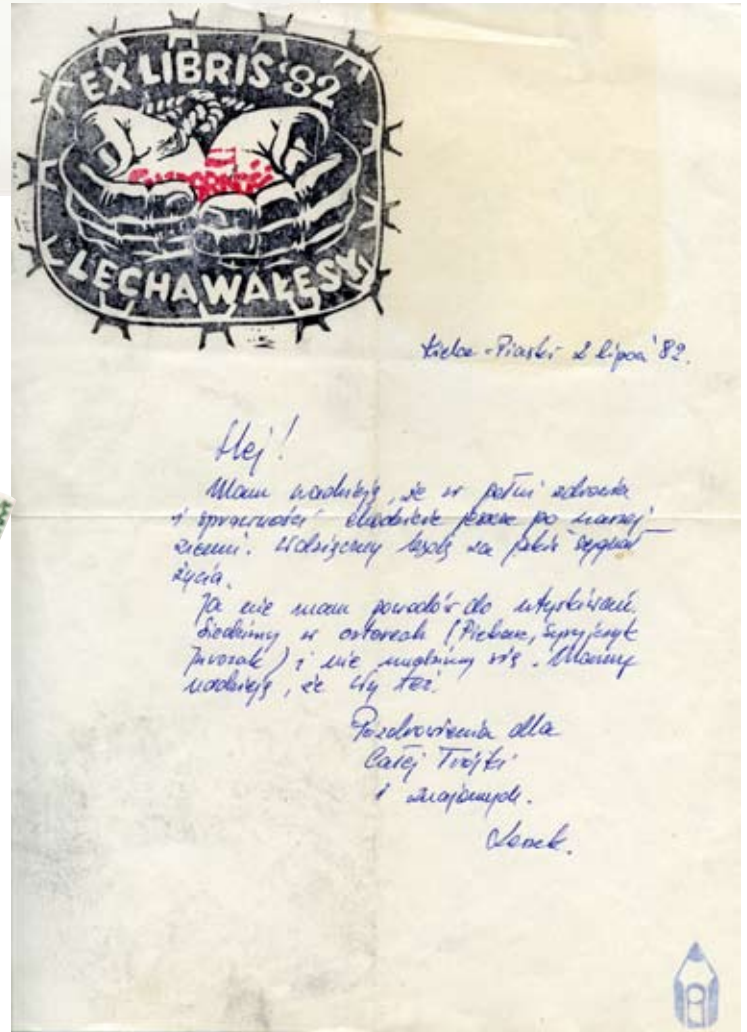 EX LIBRIS '82
LECHA WAŁĘSY
Kielce - Piaski 2 lipca '82.
Hej!
Mam nadzieję, że w pełni zdrowia
i sprawności chodzicie jeszcze po naszej
ziemi. Wdzięczny będę za jakiś sygnał
życia.
Ja nie mam powodów do utyskiwań.
Siedzimy w czterech (Piekarz,
) i nie nudzimy się. Mamy
nadzieję, że Wy też.
Pozdrowienia dla
Całej Trójki
i znajomych.
Leszek.